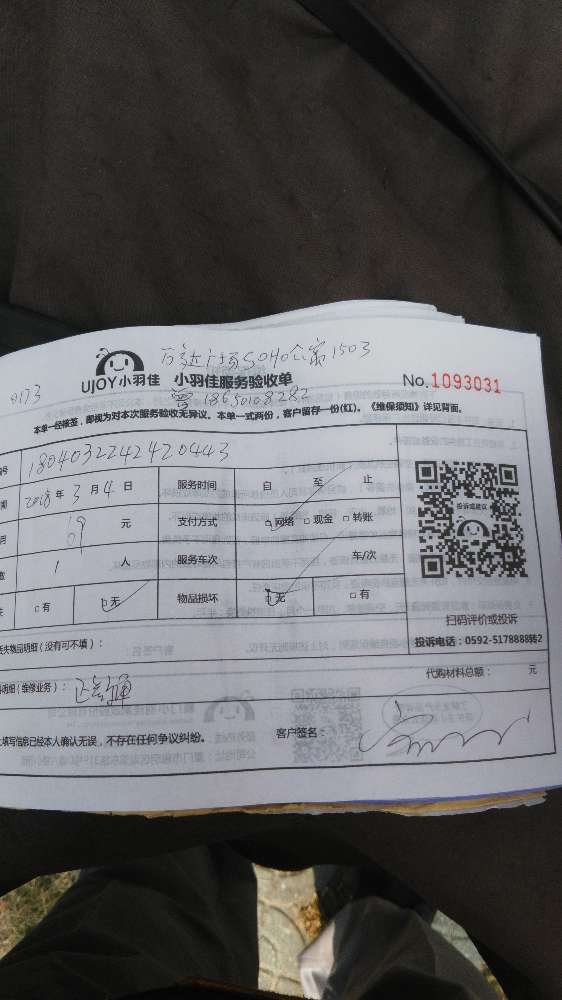 万达广场SOHO公寓1503
UJOY小羽佳 小羽佳服务验收单 No.1093031
曾 18650108282
本单一经核签，即视为对本次服务验收无异议。本单一式两份，客户留存一份(红)。《维保须知》详见背面。
号 1804032242420443
期 2018年3月4日 服务时间 自 至 止
元 支付方式 网络 现金 转账
数 1 人 服务车次 车/次
有 无 物品损坏 无 有
投诉或建议
扫码评价或投诉
投诉电话：0592-5178888转2
失物品明细（没有可不填）：
明细（维修业务）： 代购材料总额： 元
填写信息已经本人确认无误，不存在任何争议纠纷。 客户签名：